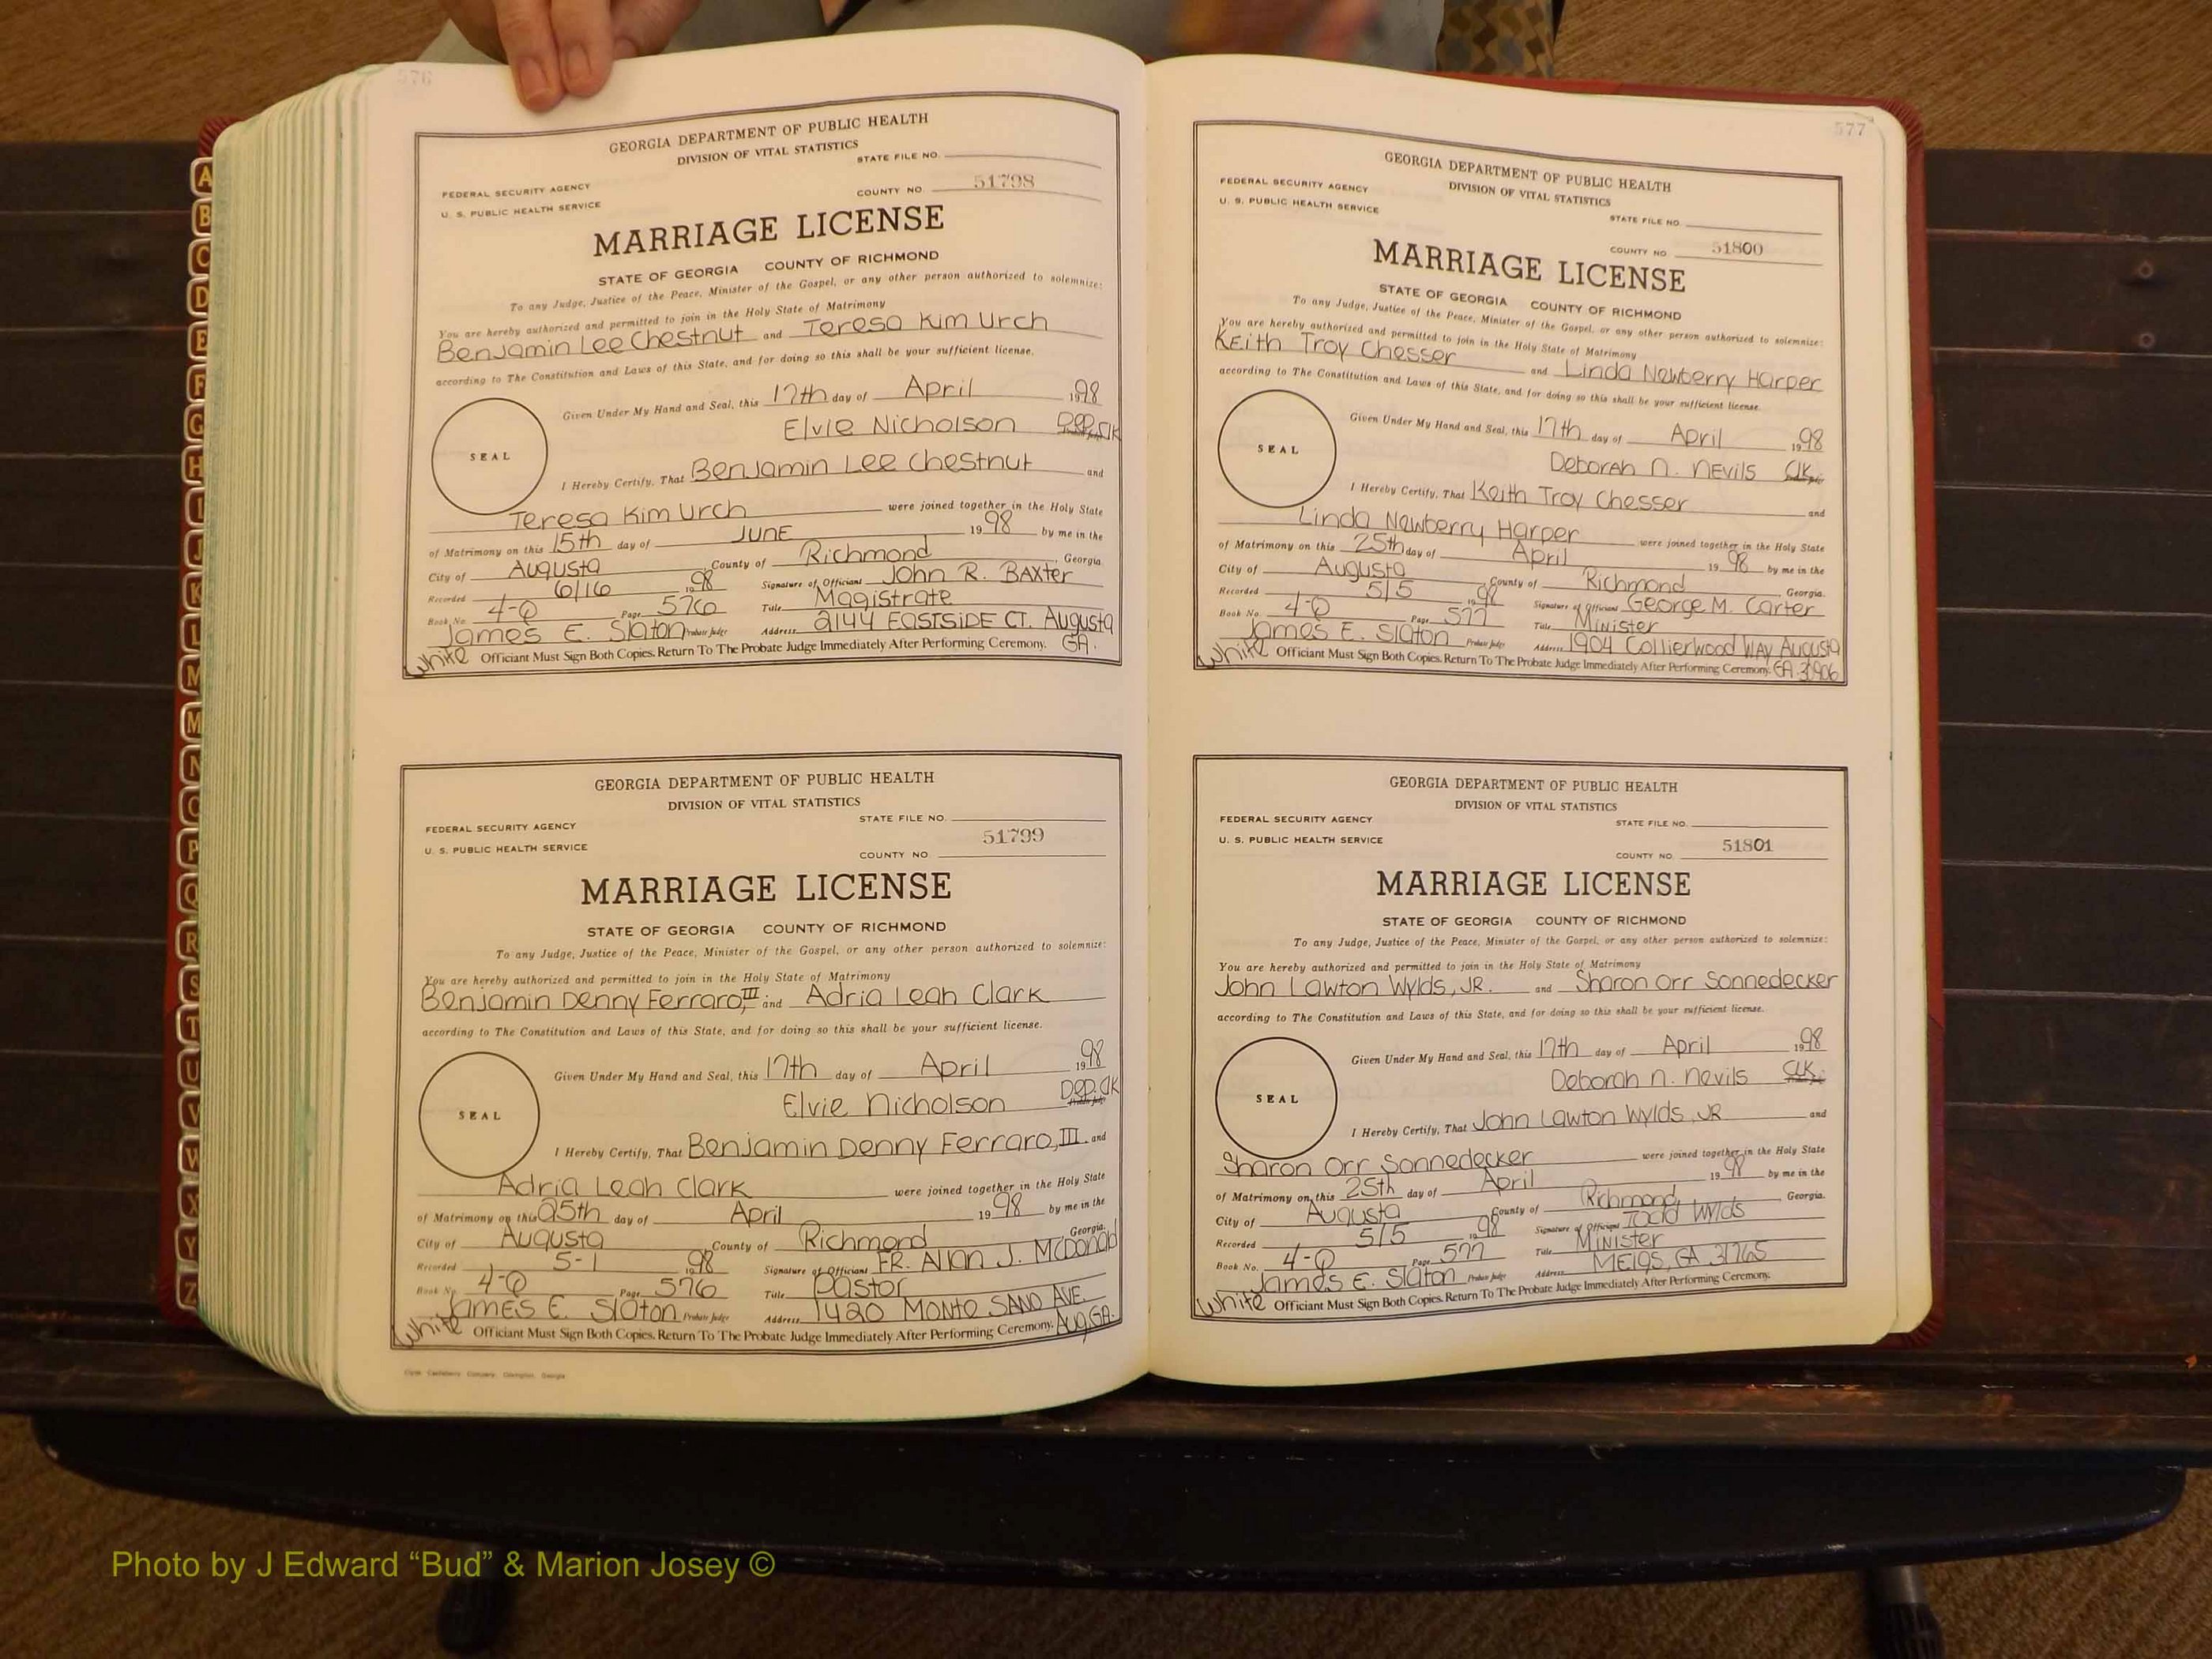 576
GEORGIA DEPARTMENT OF PUBLIC HEALTH
DIVISION OF VITAL STATISTICS
STATE FILE NO.
FEDERAL SECURITY AGENCY
U. S. PUBLIC HEALTH SERVICE
COUNTY NO. 51798
MARRIAGE LICENSE
STATE OF GEORGIA COUNTY OF RICHMOND
To any Judge, Justice of the Peace, Minister of the Gospel, or any other person authorized to solemnize:
You are hereby authorized and permitted to join in the Holy State of Matrimony
Benjamin Lee Chestnut and Teresa Kim Urch
according to The Constitution and Laws of this State, and for doing so this shall be your sufficient license.
Given Under My Hand and Seal, this 17th day of April 1998
Elvie Nicholson Dep. Clk
SEAL
I Hereby Certify, That Benjamin Lee Chestnut and
Teresa Kim Urch were joined together in the Holy State
of Matrimony on this 15th day of JUNE 1998 by me in the
City of Augusta County of Richmond, Georgia.
Recorded 6/16 1998 Signature of Officiant John R. BAxter
Book No. 4-Q Page 576 Title Magistrate
James E. Slaton Probate Judge Address 2144 EASTSIDE CT. Augusta
GA.
White Officiant Must Sign Both Copies. Return To The Probate Judge Immediately After Performing Ceremony.
GEORGIA DEPARTMENT OF PUBLIC HEALTH
DIVISION OF VITAL STATISTICS
STATE FILE NO.
FEDERAL SECURITY AGENCY
U. S. PUBLIC HEALTH SERVICE
COUNTY NO. 51799
MARRIAGE LICENSE
STATE OF GEORGIA COUNTY OF RICHMOND
To any Judge, Justice of the Peace, Minister of the Gospel, or any other person authorized to solemnize:
You are hereby authorized and permitted to join in the Holy State of Matrimony
Benjamin Denny Ferraro, III and Adria Leah Clark
according to The Constitution and Laws of this State, and for doing so this shall be your sufficient license.
Given Under My Hand and Seal, this 17th day of April 1998
Elvie Nicholson Dep. Clk
SEAL
I Hereby Certify, That Benjamin Denny Ferraro, III and
Adria Leah Clark were joined together in the Holy State
of Matrimony on this 25th day of April 1998 by me in the
City of Augusta County of Richmond Georgia.
Recorded 5-1 1998 Signature of Officiant FR. Allan J. McDonald
Book No. 4-Q Page 576 Title Pastor
James E. Slaton Probate Judge Address 1420 MONTE SANO AVE.
Aug, GA.
White Officiant Must Sign Both Copies. Return To The Probate Judge Immediately After Performing Ceremony.
577
GEORGIA DEPARTMENT OF PUBLIC HEALTH
DIVISION OF VITAL STATISTICS
FEDERAL SECURITY AGENCY
U. S. PUBLIC HEALTH SERVICE
STATE FILE NO.
COUNTY NO. 51800
MARRIAGE LICENSE
STATE OF GEORGIA COUNTY OF RICHMOND
To any Judge, Justice of the Peace, Minister of the Gospel, or any other person authorized to solemnize:
You are hereby authorized and permitted to join in the Holy State of Matrimony
Keith Troy Chesser and Linda Newberry Harper
according to The Constitution and Laws of this State, and for doing so this shall be your sufficient license.
Given Under My Hand and Seal, this 17th day of April 1998
Deborah N. Nevils Clk.
SEAL
I Hereby Certify, That Keith Troy Chesser and
Linda Newberry Harper were joined together in the Holy State
of Matrimony on this 25th day of April 1998 by me in the
City of Augusta County of Richmond Georgia.
Recorded 5/5 1998 Signature of Officiant George M. Carter
Book No. 4-Q Page 577 Title Minister
James E. Slaton Probate Judge Address 1904 Collierwood WAY Augusta
GA. 30906
White Officiant Must Sign Both Copies. Return To The Probate Judge Immediately After Performing Ceremony.
GEORGIA DEPARTMENT OF PUBLIC HEALTH
DIVISION OF VITAL STATISTICS
FEDERAL SECURITY AGENCY
STATE FILE NO.
U. S. PUBLIC HEALTH SERVICE
COUNTY NO. 51801
MARRIAGE LICENSE
STATE OF GEORGIA COUNTY OF RICHMOND
To any Judge, Justice of the Peace, Minister of the Gospel, or any other person authorized to solemnize:
You are hereby authorized and permitted to join in the Holy State of Matrimony
John Lawton Wylds, JR. and Sharon Orr Sonnedecker
according to The Constitution and Laws of this State, and for doing so this shall be your sufficient license.
Given Under My Hand and Seal, this 17th day of April 1998
Deborah N. Nevils Clk.
SEAL
I Hereby Certify, That John Lawton Wylds, JR and
Sharon Orr Sonnedecker were joined together in the Holy State
of Matrimony on this 25th day of April 1998 by me in the
City of Augusta County of Richmond, Georgia.
Recorded 5/5 1998 Signature of Officiant Todd Wylds
Book No. 4-Q Page 577 Title Minister
James E. Slaton Probate Judge Address MEIGS, GA 31765
White Officiant Must Sign Both Copies. Return To The Probate Judge Immediately After Performing Ceremony.
A
B
C
D
E
F
G
H
I
J
K
L
M
M
N
O
P
Q
R
S
T
U
V
W
X
Y
Z
Photo by J Edward “Bud” & Marion Josey ©